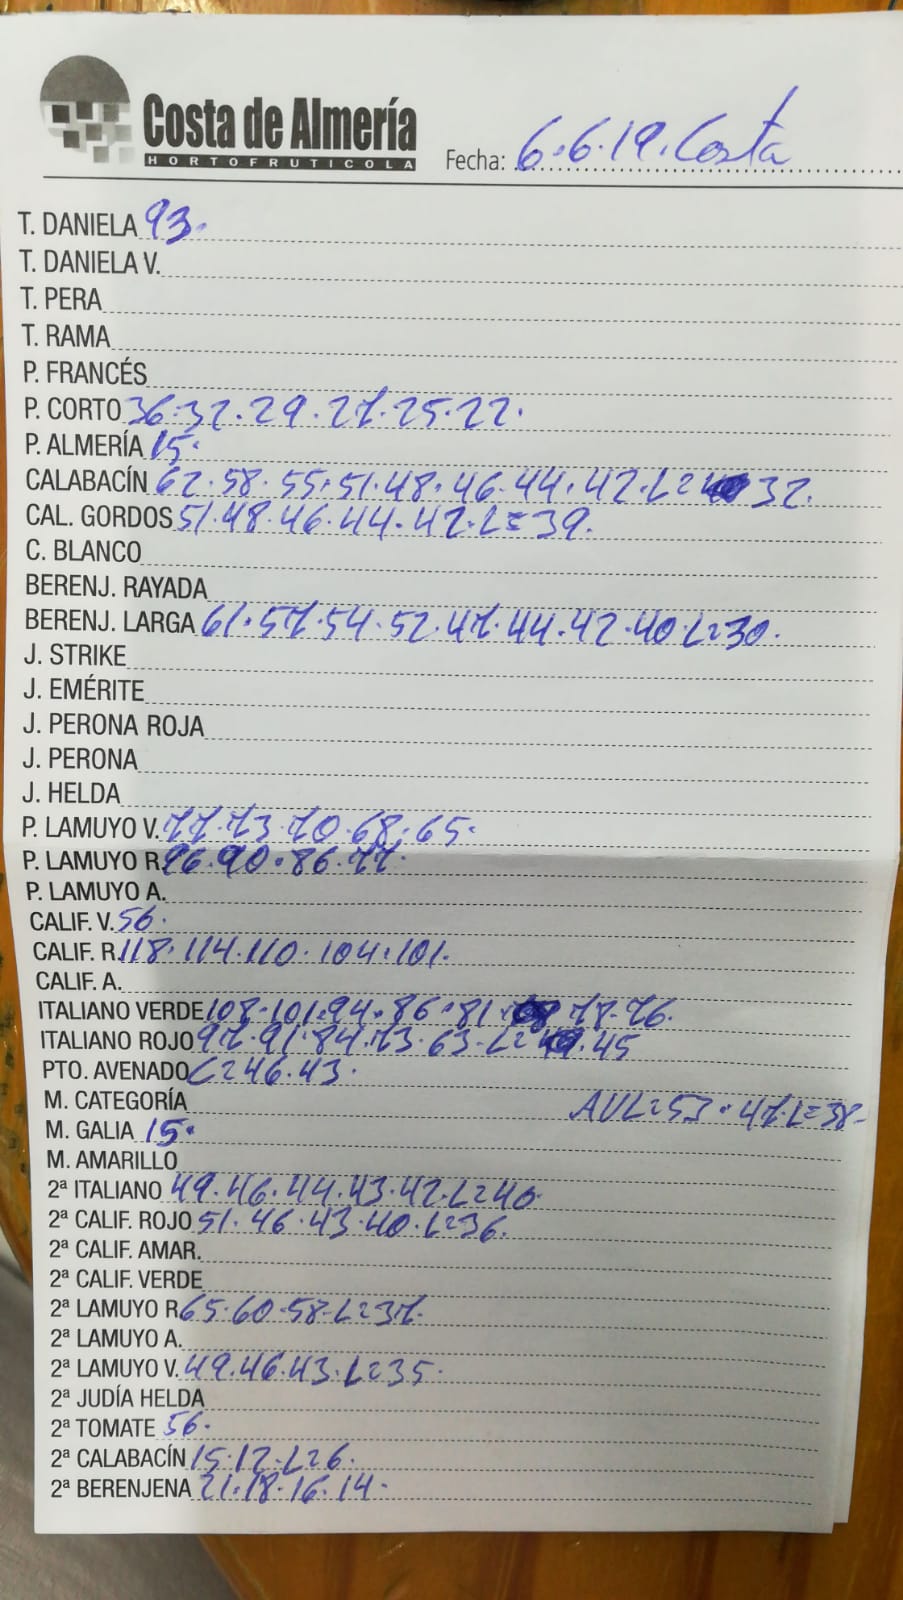 Costa de Almería
HORTOFRUTICOLA
Fecha: 6.6.19. Costa
T. DANIELA 93.
T. DANIELA V.
T. PERA
T. RAMA
P. FRANCÉS
P. CORTO 36.32.29.27.25.22.
P. ALMERÍA 15.
CALABACÍN 62.58.55.51.48.46.44.42.L=32.
CAL. GORDOS 51.48.46.44.42.L=39.
C. BLANCO
BERENJ. RAYADA
BERENJ. LARGA 61.57.54.52.47.44.42.40.L=30.
J. STRIKE
J. EMÉRITE
J. PERONA ROJA
J. PERONA
J. HELDA
P. LAMUYO V. 77.73.70.68.65.
P. LAMUYO R. 96.90.86.77.
P. LAMUYO A.
CALIF. V. 56.
CALIF. R. 118.114.110.104.101.
CALIF. A.
ITALIANO VERDE 108.101.94.86.81.77.76.
ITALIANO ROJO 97.91.84.73.63.L=45
PTO. AVENADO C=46.43.
M. CATEGORÍA AVL=53.47.L=38-
M. GALIA 15.
M. AMARILLO
2ª ITALIANO 49.46.44.43.42.L=40.
2ª CALIF. ROJO 51.46.43.40.L=36.
2ª CALIF. AMAR.
2ª CALIF. VERDE
2ª LAMUYO R. 65.60.58.L=37.
2ª LAMUYO A.
2ª LAMUYO V. 49.46.43.L=35.
2ª JUDÍA HELDA
2ª TOMATE 56.
2ª CALABACÍN 15.12.L=6.
2ª BERENJENA 21.18.16.14.